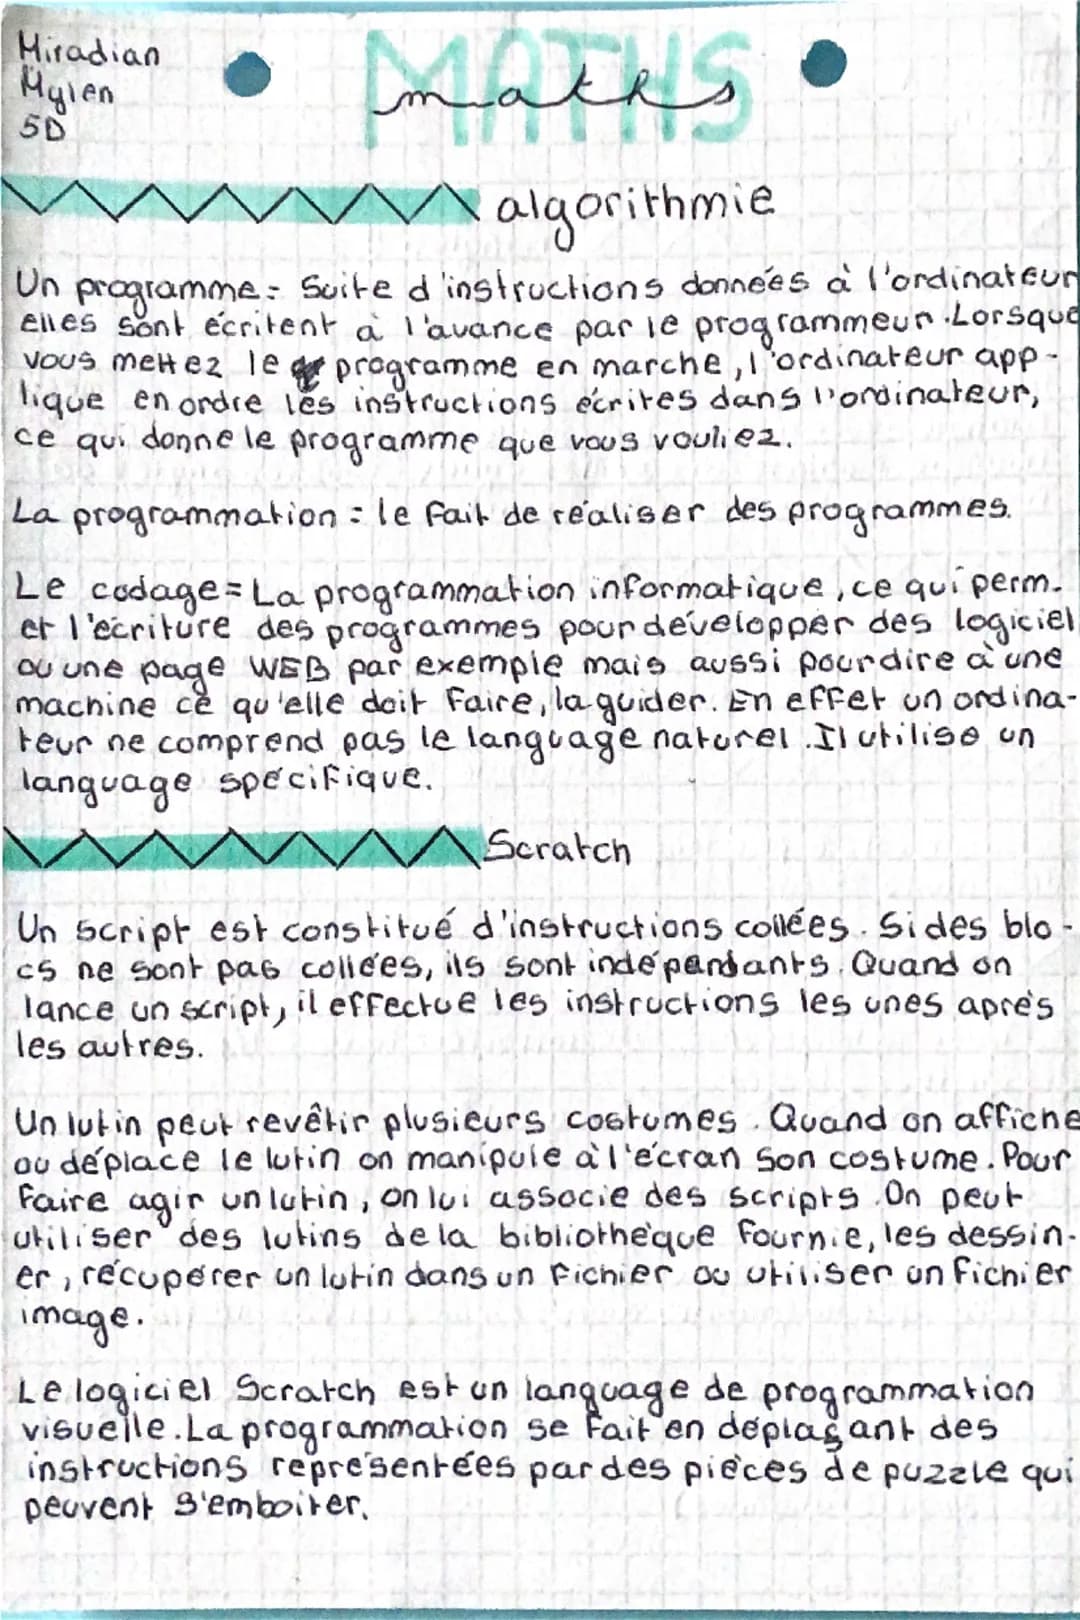 Miradian
Mylen
5D
MATHS
maths
algorithmie
Un programme = Suite d'instructions données à l'ordinateur
elles sont écritent à l'avance par le programmeur. Lorsque
vous mettez le programme en marche, l'ordinateur app-
lique en ordre les instructions écrites dans l'ordinateur,
ce qui donne le programme que vous vouliez.
La programmation = le fait de réaliser des programmes.
Le codage = La programmation informatique, ce qui perm-
et l'écriture des programmes pour développer des logiciel
ou une page WEB par exemple mais aussi pour dire à une
machine ce qu'elle doit faire, la guider. En effet un ordina-
teur ne comprend pas le language naturel. Il utilise un
language spécifique.
Scratch
Un script est constitué d'instructions collées. Si des blo-
cs ne sont pas collées, ils sont indépendants. Quand on
lance un script, il effectue les instructions les unes après
les autres.
Un lutin peut revêtir plusieurs costumes. Quand on affiche
ou déplace le lutin on manipule à l'écran son costume. Pour
faire agir un lutin, on lui associe des scripts. On peut
utiliser des lutins de la bibliothèque fournie, les dessin-
er, récupérer un lutin dans un fichier ou utiliser un fichier
image.
Le logiciel Scratch est un language de programmation
visuelle. La programmation se fait en déplaçant des
instructions représentées par des pièces de puzzle qui
peuvent s'emboiter.